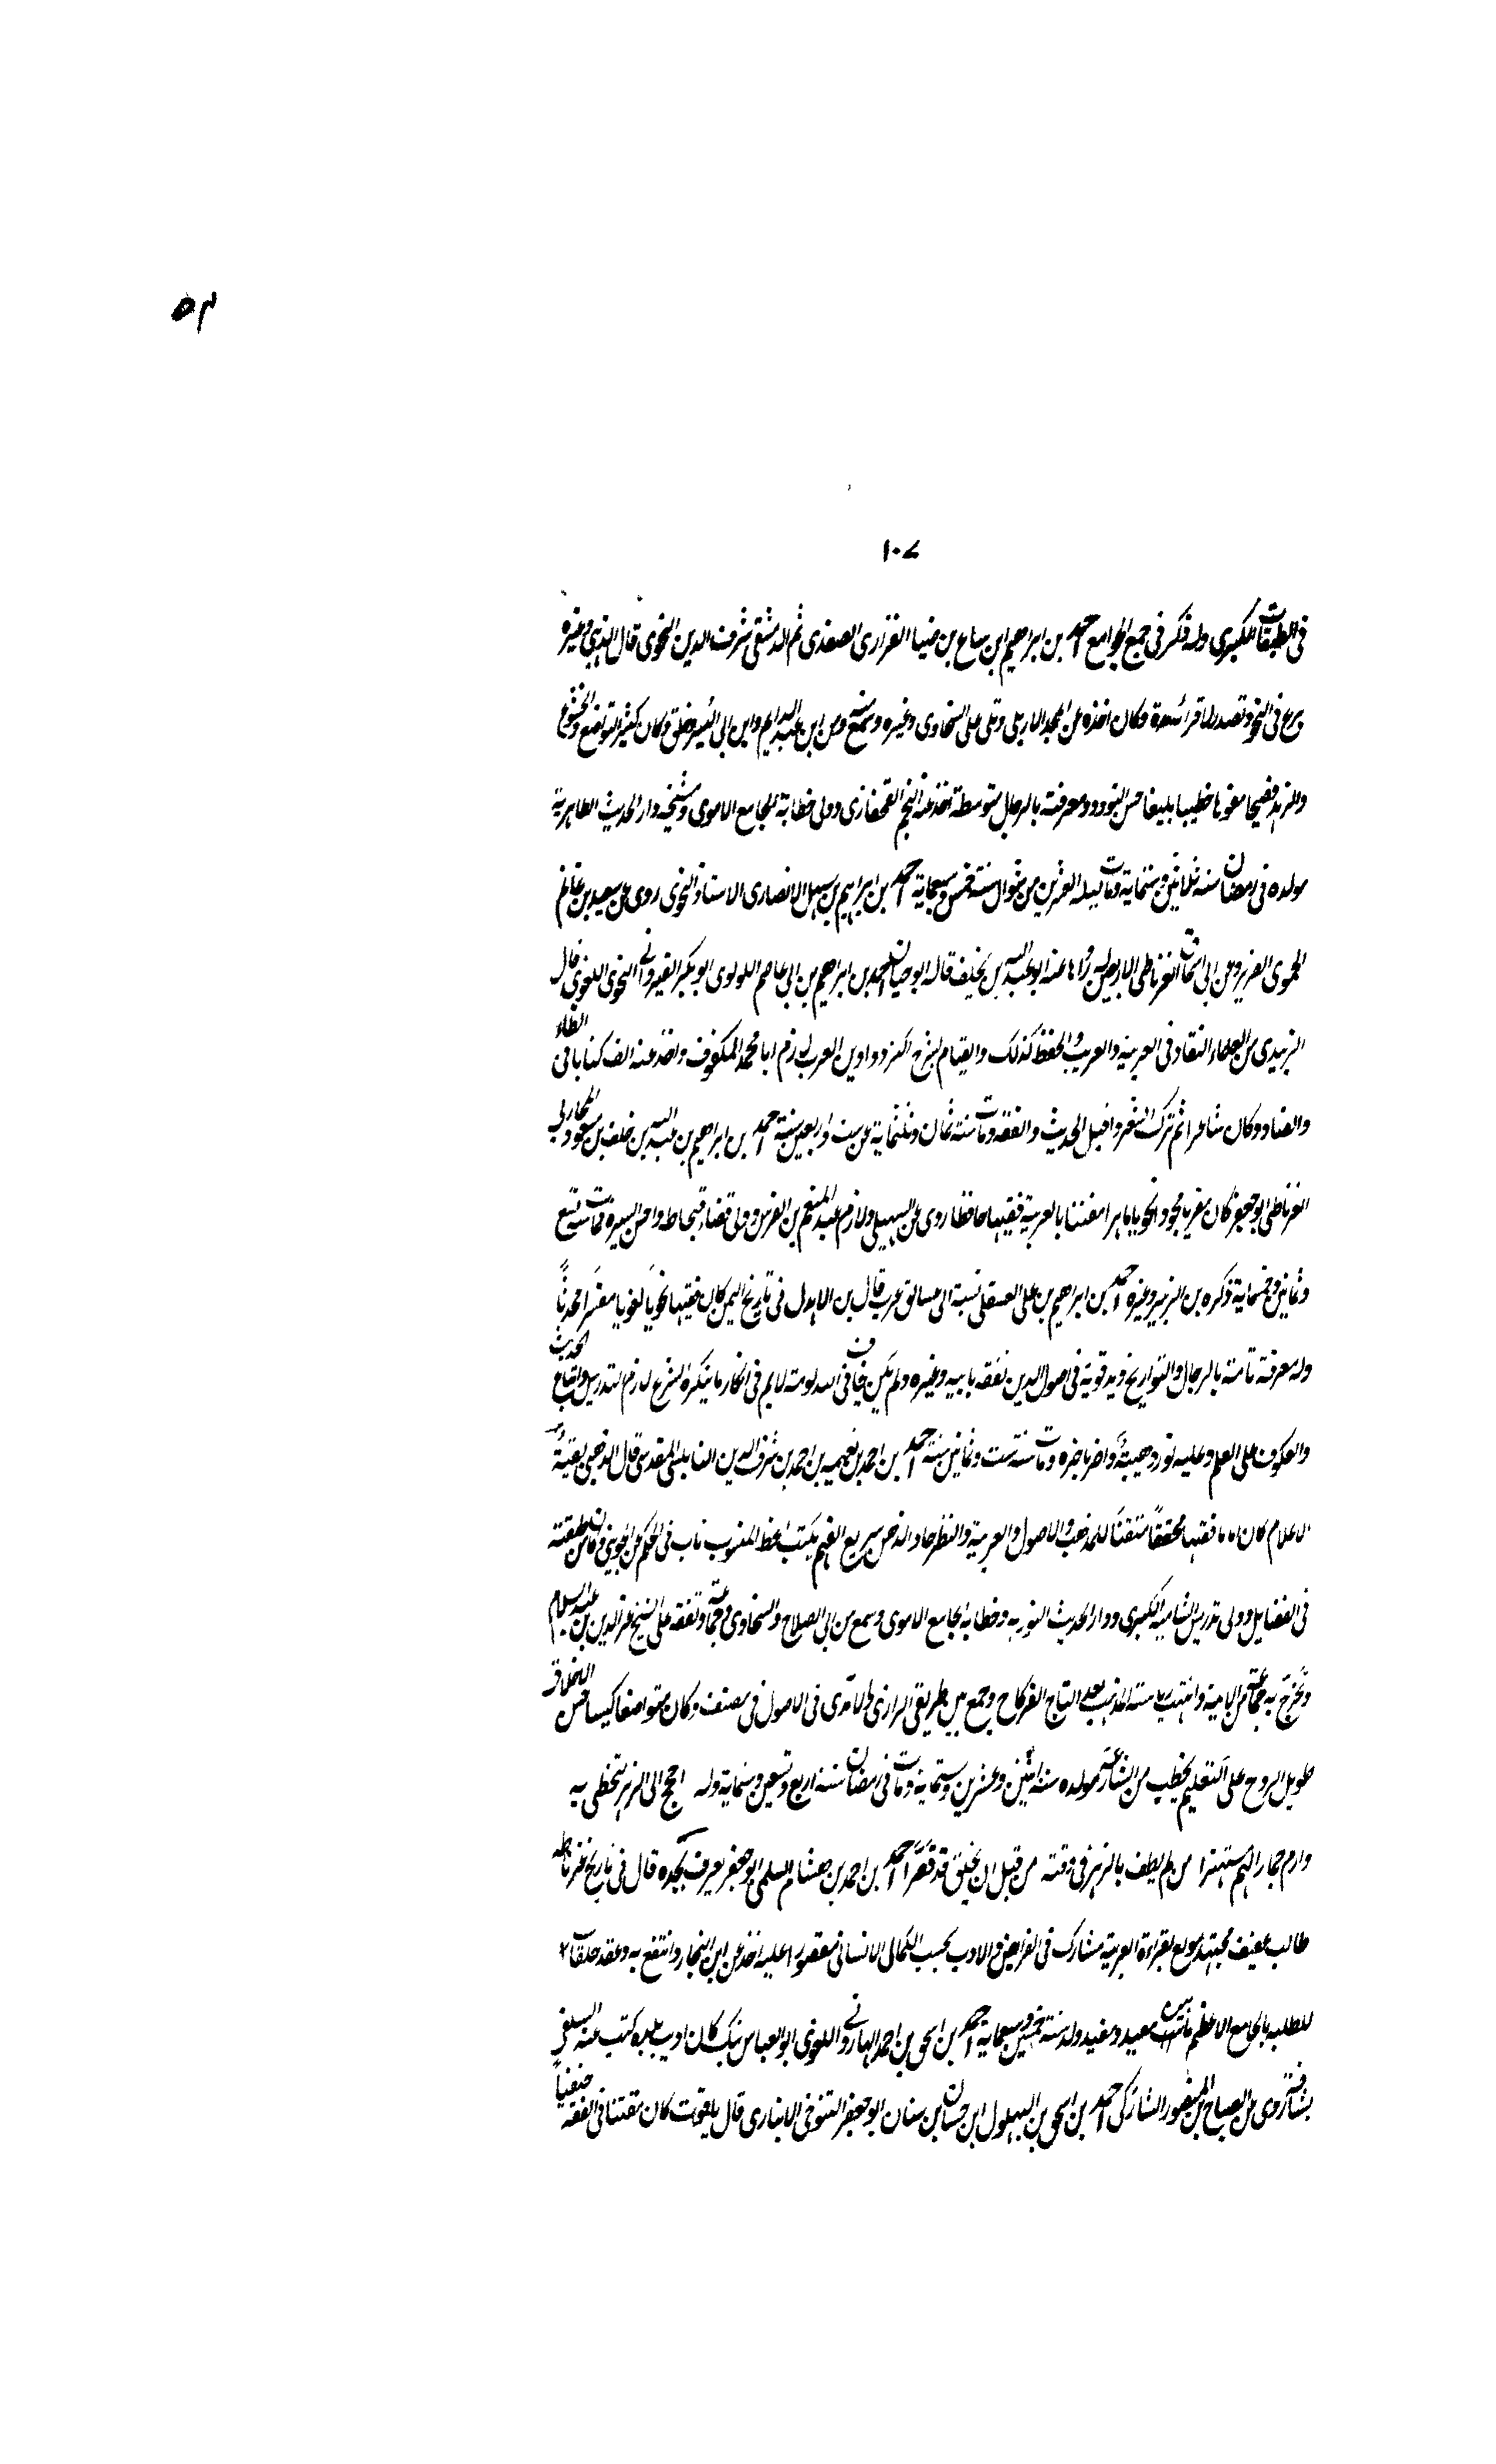 ٥٣
١٠٧
فى الطبقات الكبرى وله ذكر فى جمع الجوامع احمد بن ابراهيم ابن سباع بن ضيا الفزارى الصعدى ثم الدمشقى شرف الدين النحوى قال الذهبى وغيره
برع فى النحو وتصدر لاقرائه مدة وكان اخذه عن المجد الاربلى وتلى على السخاوى وغيره وسمع منه ومن ابن عبد الدايم وابن ابى اليسر وخلق وكان كثير التواضع والخشوع
والزهد فصيحا مفوها خطيبا بليغا حسن التودد ومعرفته بالرجال متوسطة اخذ عنه النجم القحفازى وولى خطابة الجامع الاموى ومشيخة دار الحديث الظاهرية
مولده فى رمضان سنة ثلاثين وستماية ومات ليلة العشرين من شوال سنة خمس وسبعماية احمد بن ابراهيم بن سهل الانصارى الاستاذ النحوى روى عن سعيد بن غانم
الحموى العزيز وعن ابى اسحاق الغرناطى الاربعين له رواها عنه ابو عبد الله بن يخلف قاله ابو حيان احمد بن ابراهيم بن ابى عاصم اللولوى ابو بكر القيروانى النحوى اللغوى قال
الزبيدى من العلماء النقاد فى العربية والغريب والحفظ لذلك والقيام بشرح اكثر دواوين العرب لازم ابا محمد المكفوف واخذ عنه الف كتابا فى الظاء
والضاد وكان شاعرا ثم ترك الشعر واقبل الحديث والفقه ومات سنة ثمان وثلثماية عن ست واربعين سنة احمد بن ابراهيم بن عبد الله بن خلف بن مسعود المحاربى
الغرناطى ابو جعفر كان مقريا مجودا نحويا ماهرا مفننا بالعربية فقيها حافظا روى عن السهيلى ولازم عبد المنعم بن الفرس وولى قضاء قيجاطه واحسن السيرة مات سنة تسع
وثمانين وخمسماية ذكره بن الزبير وغيره احمد بن ابراهيم بن على العسقلى نسبة الى عسالق عرب قال بن الاهدل فى تاريخ اليمن كان فقيها نحوياً لغويا مفسرا محدثاً
وله معرفة تامة بالرجال والتواريخ ويد قوية فى اصول الدين تفقه بابيه وغيره ولم يكن يخاف فى الله لومة لايم فى انكار ما ينكره الشرع لازم لتدريس واسماع الحديث
والعكوف على العلم وعليه نور وهيبة واضر باخره ومات سنة ست وثمانين سنة احمد بن احمد بن نعمه بن احمد بن شرف الدين النابلسى المقدسى قال الذهبى بقية
الاعلام كان اماما فقيها محققاً متقنا للمذهب والاصول والعربية والنظر حاد الذهن سريع الفهم يكتب الخط المنسوب ناب فى الحكم عن الخويى وكان من طبقته
فى الفضايل وولى تدريس الشامية الكبرى ودار الحديث النوريه وخطابه الجامع الاموى وسمع من ابى الصلاح والسخاوى وجماعة وتفقه على الشيخ عز الدين بن عبد السلام
وتخرج به جماعة من الايمة وانتهت رياسته المذهب بعد التاج الفركاح وجمع بين طريقى الرازى والامدى فى الاصول فى مصنف وكان متواضعا كيسا حسن الاخلاق
طويل الروح على التعليم يخطب من انشائه مولده سنة اثنين وعشرين وستماية ومات فى رمضان سنة اربع وتسعين وستماية وله احجج الى الزهر لتحظى به
وارم جمار الهم مستهترا من لم يطف بالزهر فى وقته من قبل ان يحلق قد قصّرا احمد بن احمد بن هشام السلمى ابو جعفر يعرف بجده قال فى تاريخ غرناطه
طالب عفيف مجتهد مولع بقراءة العربية مشارك فى الفرايض والادب بحسب الكمال الانسانى مقصورا عليه اخذ عن ابن الفخار وانتفع به وعقد حلقات
للطلبه بالجامع الاعظم معيد ومفيد ولد سنة خمسين وسبعماية احمد بن اسحق بن احمد الهارونى واللغوى ابو العباس بنك كان اديب بلده كتب عنه السلفى
روى عن الصباح بن منصور الشاركى احمد بن اسحق بن البهلول ابن حسان بن سنان ابو جعفر التنوخى الانبارى قال ياقوت كان مفتنا فى الفقه حنفياً